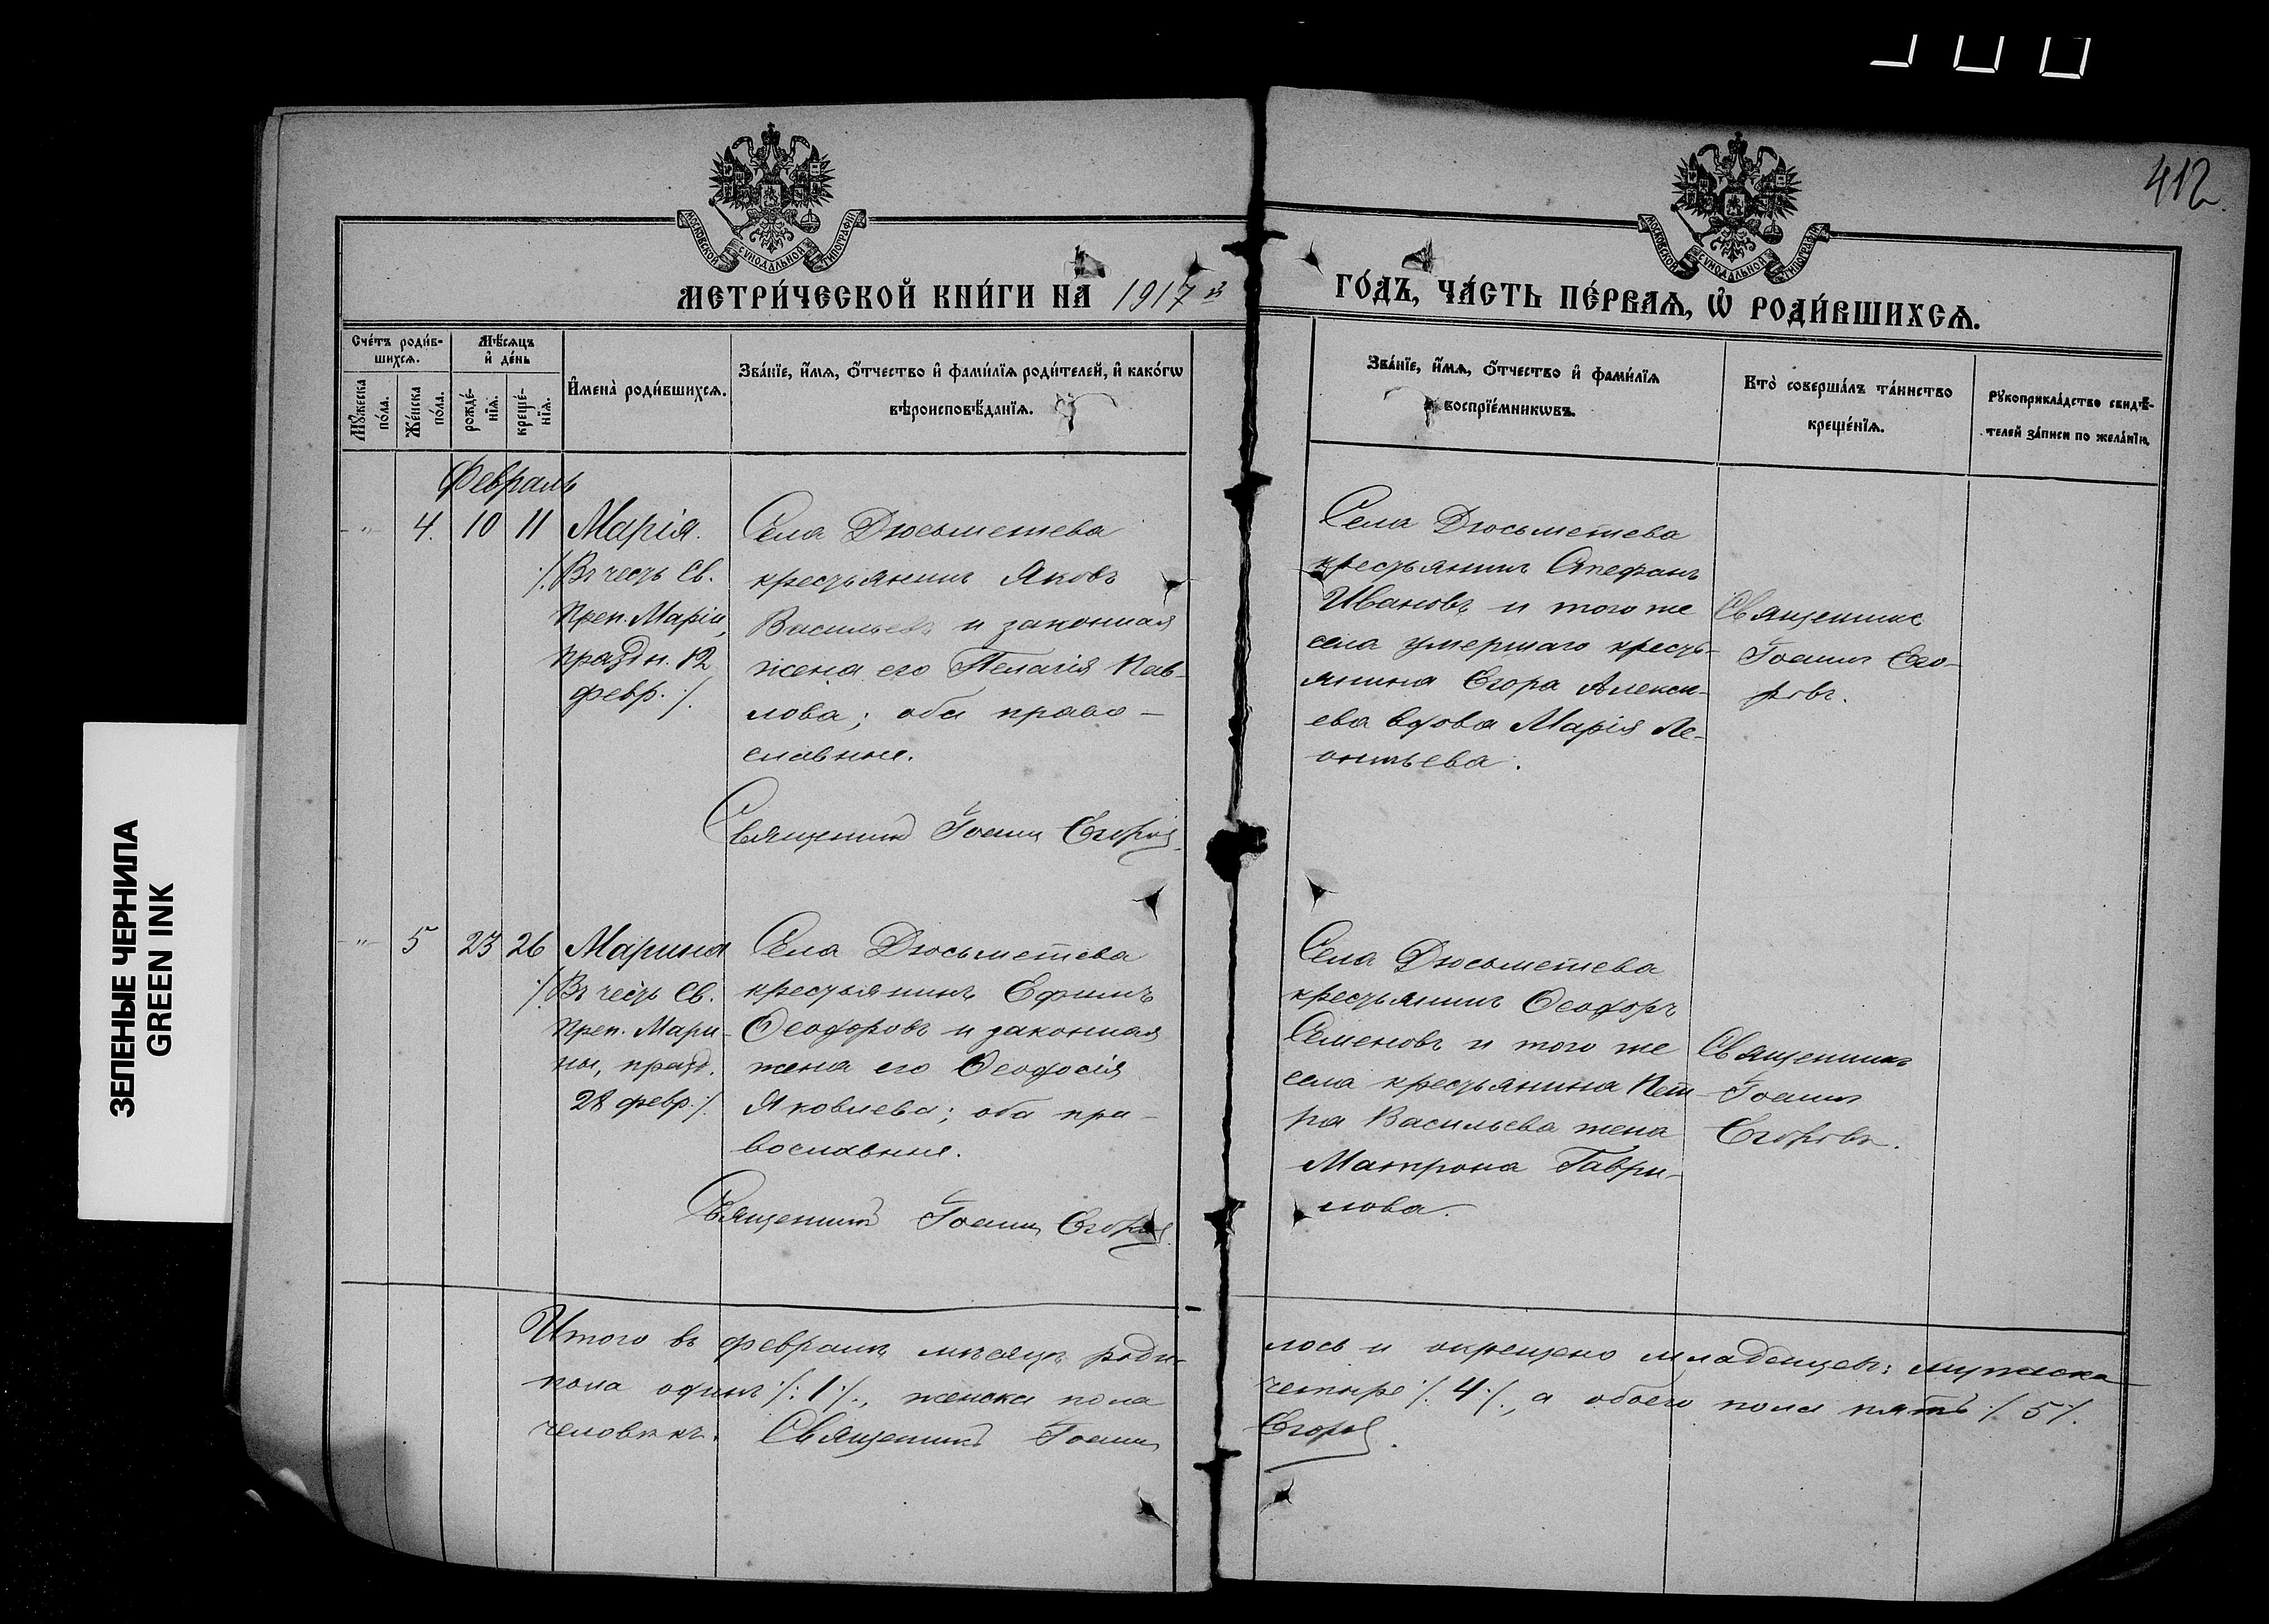 412
МОСКОВСКОЙ СѴНОДАЛЬНОЙ ТИПОГРАФІИ
МОСКОВСКОЙ СѴНОДАЛЬНОЙ ТИПОГРАФІИ
МЕТРИ́ЧЕСКОЙ КНИ́ГИ НА 1917 й
ГО́ДЪ, ЧА́СТЬ ПЕ́РВАЯ, Ѡ РОДИ́ВШИХСЯ.
Сче́тъ роди́в-
шихся.
Мꙋжеска
по́ла.
Же́нска
по́ла.
Мѣ́сяцъ
и҆ де́нь
рожде́-
нїя.
креще́-
нїя.
И҆мена̀ роди́вшихся.
Зва́нїе, и҆́мя, ѻ҆́тчество и҆ фами́лїя роди́телей, и҆ како́гѡ
вѣроисповѣ́данїя.
Зва́нїе, и҆́мя, ѻ҆́тчество и҆ фами́лїя
воспрїе́мникѡвъ.
Кто̀ соверша́лъ та́инство
креще́нїя.
Рꙋкоприкла́дство свидѣ́-
телей за́писи по жела́нїю.
Февраль
-"- 4. 10 11 Марія.
/. Въ честь Св.
Преп. Маріи,
праздн. 12
февр. ./.
Села Дюсьметева
крестьянинъ Яковъ
Васильевъ и законная
жена его Пелагія Пав-
лова; оба право-
славные.
Священникъ Іоаннъ Егоровъ
Села Дюсьметева
крестьянинъ Стефанъ
Ивановъ и того же
села умершаго кресть-
янина Егора Алексѣ-
ева вдова Марія Ле-
онтьева.
Священникъ
Іоаннъ Его-
ровъ.
-"- 5 23 26 Марина
/. Въ честь Св.
Преп. Мари-
ны, празд.
28 февр. ./.
Села Дюсьметева
крестьянинъ Ефимъ
Ѳеодоровъ и законная
жена его Ѳеодосія
Яковлева; оба пра-
вославные.
Священникъ Іоаннъ Егоровъ
Села Дюсьметева
крестьянинъ Ѳеодоръ
Семеновъ и того же
села крестьянина Пет-
ра Васильева жена
Матрона Гаври-
лова.
Священникъ
Іоаннъ
Егоровъ.
Итого въ февралѣ мѣсяцѣ роди-
лось и окрещено младенцевъ: мужска
пола одинъ /. 1 ./., женска пола
четыре /. 4 ./., а обоего пола пять /. 5 ./.
человѣкъ. Священникъ Іоаннъ
Егоровъ.
ЗЕЛЕНЫЕ ЧЕРНИЛА
GREEN INK